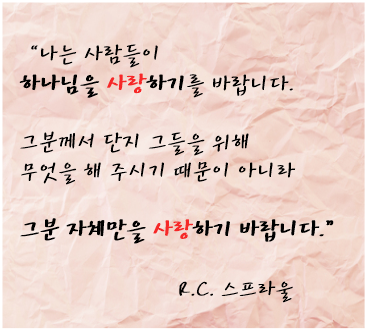 “나는 사람들이
하나님을 사랑하기를 바랍니다.
그분께서 단지 그들을 위해
무엇을 해 주시기 때문이 아니라
그분 자체만을 사랑하기 바랍니다.”
R.C. 스프라울